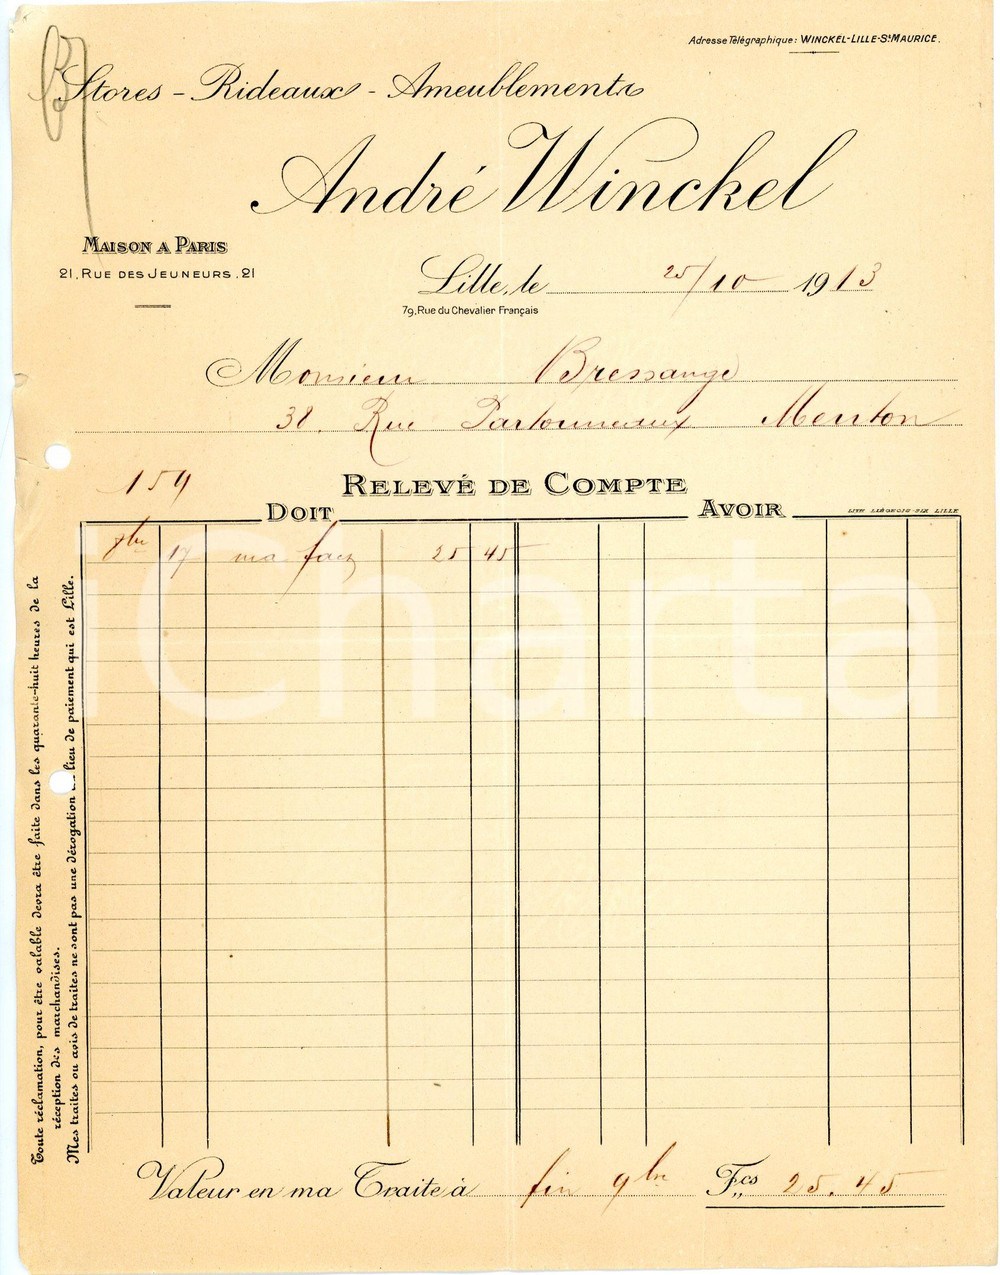 Adresse Télégraphique: WINCKEL-LILLE-St MAURICE.
Stores - Rideaux - Ameublements
André Winckel
MAISON A PARIS
21, RUE DES JEUNEURS, 21
Lille, le 25/10 1913
79, Rue du Chevalier Français
Monsieur Bressange
38. Rue Partouneaux Menton
159
RELEVÉ DE COMPTE
DOIT AVOIR
LITH LIÉGEOIS-SIX LILLE
17 ma fact 25 45
Toute réclamation, pour être valable devra être faite dans les quarante-huit heures de la
réception des marchandises.
Mes traites ou avis de traites ne sont pas une dérogation lieu de paiement qui est Lille.
Valeur en ma Traite à fin 9bre Fcs 25.45
iCharta